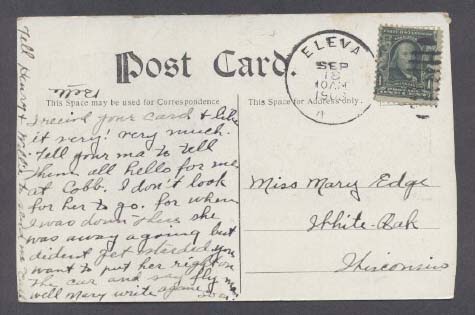 Post Card.
This Space may be used for Correspondence
This Space for Address only.
ELEVA
SEP
18
10 AM
Belle
I recived your card & like
it very! very much.
Tell your ma to tell
them all hello for me
at Cobb. I don't look
for her to go. for when
I was down thus she
was away agoing but
dident get started you
want to put her right on
the car and say fly
well Mary write again soon
Miss Mary Edge
White-Oak
Wisconsin
Tell Henry